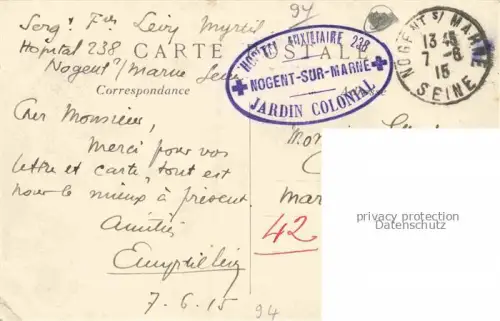 94
Serg.t F.er Levy Myrtil
Hopital 238
Nogent s/Marne Seine
CARTE POSTALE
HOPITAL AUXILIAIRE 238
NOGENT-SUR-MARNE
JARDIN COLONIAL
NOGENT S/ MARNE
13 45
7 - 6
15
SEINE
Correspondance
Cher Monsieur,
Merci pour vos
lettre et carte, tout est
pour le mieux à présent.
Amitiés
7.6.15
94
Mar
42
privacy protection
Datenschutz